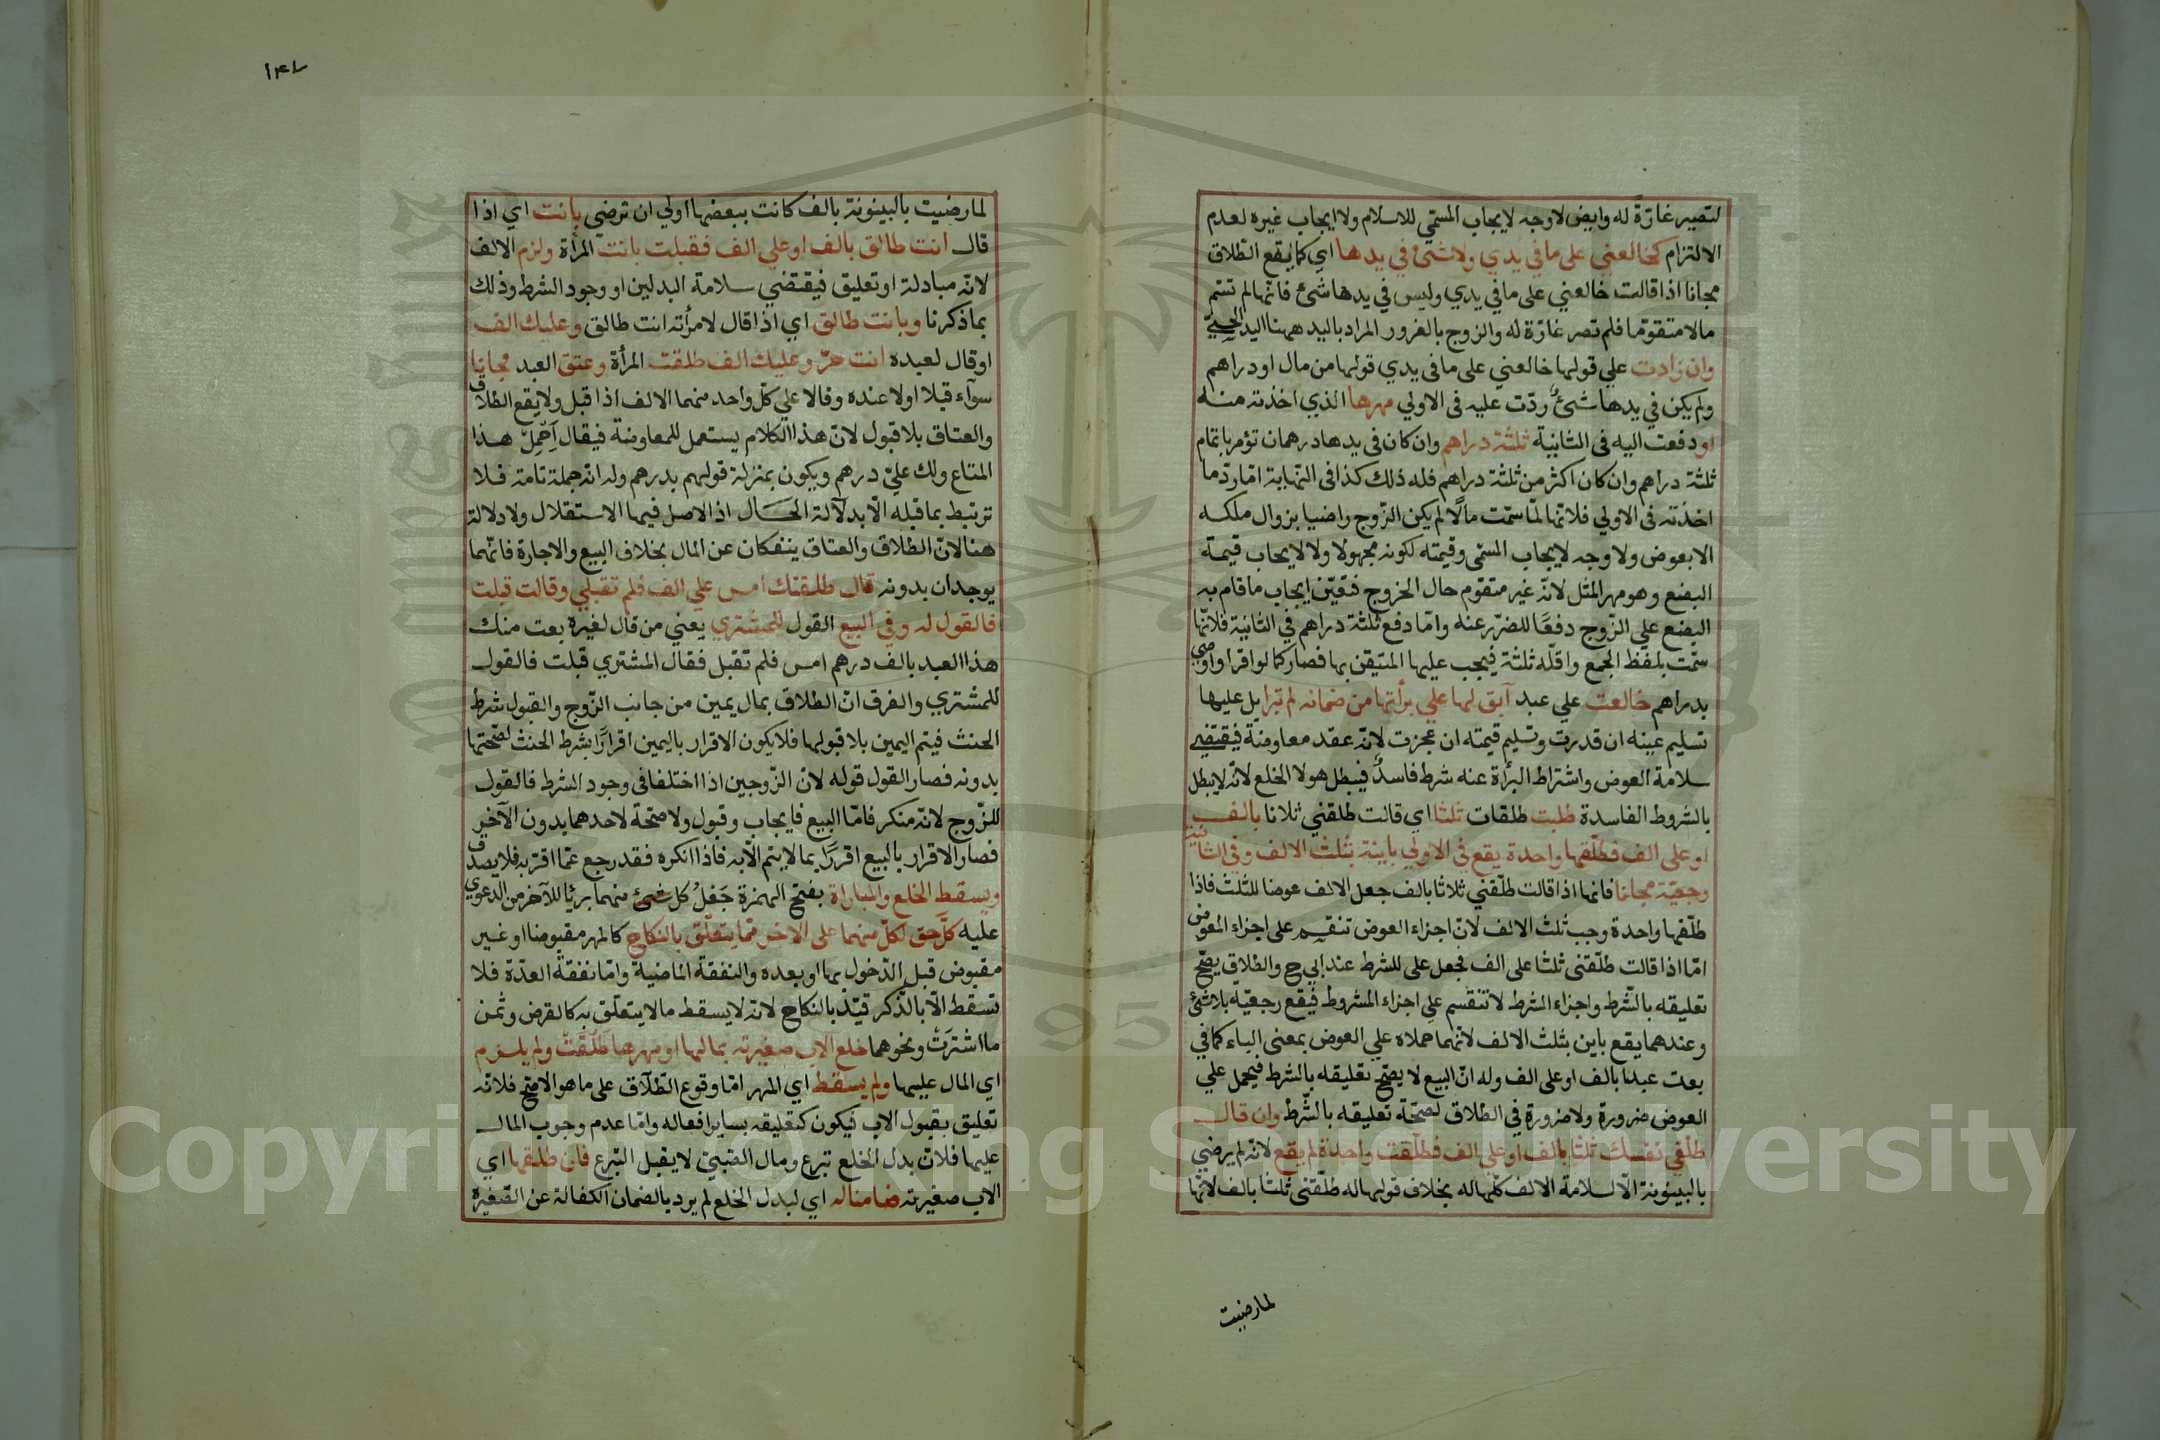 لتصير غارّةً له وايض لاوجه لايجاب المسمّي للاسلام ولا ايجاب غيره لعدم
الالتزام كخالعني على ما في يدي ولا شئ في يدها اي كما يقع الطّلاق
مجانا اذا قالت خالعني على ما في يدي وليس في يدها شئ فانّها لم تسمّ
مالا متقوّما فلم تصر غارّة له والزوج بالغرور المراد باليد ههنا اليد الحسّيّ
وان زادت علي قولها خالعني على ما في يدي قولها من مال او دراهم
ولم يكن في يدها شئ ردّت عليه في الاولي مهرها الذي اخذته منه
او دفعت اليه في الثانية ثلثة دراهم وان كان في يدها درهمان تؤمر باتمام
ثلثة دراهم وان كان اكثر من ثلثة دراهم فله ذلك كذا في النهاية امّا ردّ ما
اخذته في الاولي فلانّها لمّا سمّت مالاً لم يكن الزّوج راضيا بزوال ملكه
الا بعوض ولا وجه لايجاب المسمّى وقيمته لكونه مجهولا ولا لايجاب قيمة
البضع وهو مهر المثل لانّه غير متقوّم حال الخروج فتعيّن ايجاب ما قام به
البضع علي الزّوج دفعًا للضّرر عنه وامّا دفع ثلثة دراهم في الثانية فلانّها
سمّت بلفظ الجمع واقلّه ثلثة فيجب عليها المتيقن بها فصار كما لو اقرا واوصي
بدراهم خالعت علي عبد آبق لها علي برأتها من ضمانه لم تبرا بل عليها
تسليم عينه ان قدرت وتسليم قيمته ان عجزت لانّه عقد معاوضة فيقتضي
سلامة العوض واشتراط البرأة عنه شرط فاسدٌ فيبطل هو لا الخلع لانّه لا يبطل
بالشروط الفاسدة طلبت طلقات ثلثا اي قالت طلقني ثلاثا بالف
او على الف فطلّقها واحدة يقع في الاولي باينة بثلث الالف وفي الثانية
رجعيّة مجانا فانها اذا قالت طلّقني ثلاثا بالف جعل الالف عوضا للثلث فاذا
طلّقها واحدة وجب ثلث الالف لانّ اجزاء العوض تنقسم على اجزاء المعوض
امّا اذا قالت طلّقني ثلثا على الف فجعل على للشرط عند ابي ح والطّلاق يصحّ
تعليقه بالشّرط واجزاء الشرط لا تنقسم علي اجزاء المشروط فيقع رجعيّة بلا شئ
وعندهما يقع باين بثلث الالف لانّهما حملاه علي العوض بمعنى الباء كما في
بعت عبدا بالف او على الف وله انّ البيع لا يصحّ تعليقه بالشرط فيحمل علي
العوض ضرورة ولا ضرورة في الطلاق لصحّة تعليقه بالشّرط وان قال
طلّقي نفسك ثلثا بالف او على الف فطلّقت واحدة لم يقع لانّه لم يرضي
بالبينونة الّا لسلامة الالف كلّها له بخلاف قولها له طلّقني ثلثا بالف لانّها
لما رضيت
١٤٧
لما رضيت بالبينونة بالف كانت ببعضها اولي ان ترضي بانت اي اذا
قال انت طالق بالف او علي الف فقبلت بانت المرأة ولزم الالف
لانّه مبادلة او تعليق فيقتضي سلامة البدلين او وجود الشرط وذلك
بما ذكرنا وبانت طالق اي اذا قال لامرأته انت طالق وعليك الف
او قال لعبده انت حرّ وعليك الف طلقت المرأة وعتق العبد مجانا
سوآء قبلا اولا عنده وقالا علي كلّ واحد منهما الالف اذا قبل ولا يقع الطلاق
والعتاق بلا قبول لانّ هذا الكلام يستعمل للمعاوضة فيقال اَحْمِلْ هذا
المتاع ولك عليّ درهم ويكون بمنزلة قولهم بدرهم وله انّه جملة تامة فلا
ترتبط بما قبله الّا بدلالة الحال اذ الاصل فيها الاستقلال ولا دلالة
هنا لانّ الطلاق والعتاق ينفكان عن المال بخلاف البيع والاجارة فانّهما
يوجدان بدونه قال طلقتك امس علي الف فلم تقبلي وقالت قبلت
فالقول له وفي البيع القول للمشتري يعني من قال لغيره بعت منك
هذا العبد بالف درهم امس فلم تقبل فقال المشتري قبلت فالقول
للمشتري والفرق انّ الطلاق بمال يمين من جانب الزّوج والقبول شرط
الحنث فيتم اليمين بلا قبولها فلا يكون الاقرار باليمين اقرارًا بشرط الحنث لصّحتها
بدونه فصار القول قوله لانّ الزّوجين اذا اختلفا في وجود الشرط فالقول
للزّوج لانّه منكر فامّا البيع فايجاب وقبول ولا صحّة لاحدهما بدون الآخر
فصار الاقرار بالبيع اقررًا بما لا يتم الّا به فاذا انكره فقد رجع عمّا اقرّ به فلا يصدق
ويسقط الخلع والمباراة بفتح الهمزة جَعْلُ كل شئ منهما بريًا للآخر من الدعوي
عليه كلّ حق لكلّ منهما على الاخر ممّا يتعلّق بالنكاح كالمهر مقبوضا او غير
مقبوض قبل الدّخول بها او بعده والنفقة الماضية وامّا نفقة العدّة فلا
تسقط الّا بالذّكر قيّد بالنكاح لانّه لا يسقط ما لا يتعلّق به كالقرض وثمن
ما اشترَتْ ونحوهما خلع الاب صغيرته بمالها او مهرها طُلِّقَتْ ولم يلزم
اي المال عليها ولم يسقط اي المهر امّا وقوع الطّلاق على ما هو الاصح فلانّه
تعليق بقبول الاب فيكون كتعليقه بساير افعاله وامّا عدم وجوب المال
عليها فلانّ بدل الخلع تبرع ومال الصّبيّ لا يقبل التبرع فان طلقها اي
الاب صغيرته ضامنا له اي لبدل الخلع لم يرد بالضمان الكفالة عن الصّغيرة
Copyright © King Saud University